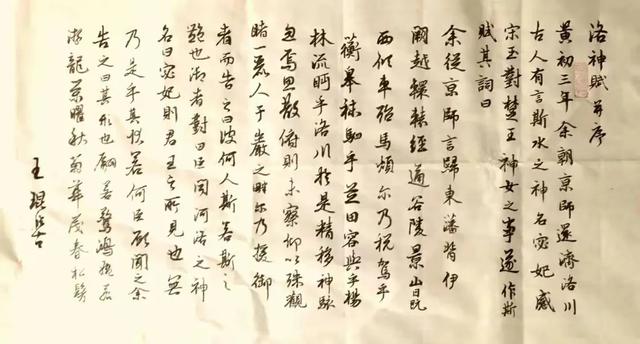 洛神賦並序
黃初三年余朝京師還濟洛川
古人有言斯水之神名宓妃感
宋玉對楚王神女之事遂作斯
賦其詞曰
余從京師言歸東藩背伊
闕越轘轅經通谷陵景山日既
西傾車殆馬煩爾乃税駕乎
蘅皋秣駟乎芝田容與乎楊
林流眄乎洛川於是精移神駭
忽焉思散俯則未察仰以殊觀
睹一麗人于巖之畔爾乃援御
者而告之曰彼何人斯若斯之
艷也御者對曰臣聞河洛之神
名曰宓妃則君王之所見也無
乃是乎其狀若何臣願聞之余
告之曰其形也翩若驚鴻婉若
游龍榮曜秋菊華茂春松髣
王